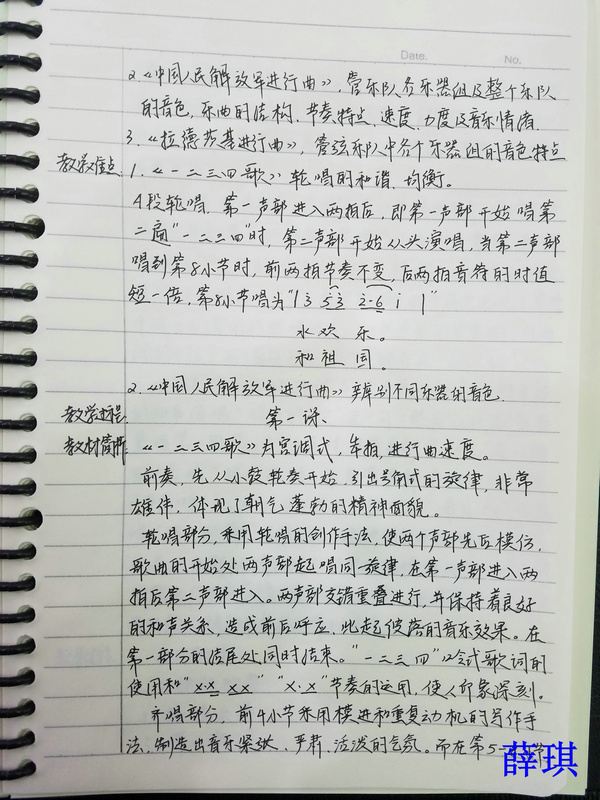 Date.
No.
2.《中国人民解放军进行曲》,管乐队各乐器组及整个乐队
的音色,乐曲的结构、节奏特点、速度、力度及音乐情绪.
3.《拉德茨基进行曲》,管弦乐队中各个乐器组的音色特点
教学难点 1.《一二三四歌》轮唱的和谐、均衡。
4段轮唱,第一声部进入两拍后,即第一声部开始唱第
二遍"一二三四"时,第二声部开始从头演唱,当第二声部
唱到第8小节时,前两拍节奏不变,后两拍音符的时值
短一倍,第8小节唱为"| 3 53 2·6 i |"
水欢乐。
和祖国。
2.《中国人民解放军进行曲》辨别不同乐器的音色.
教学过程:
第一课、
教材简析:《一二三四歌》为宫调式,单拍,进行曲速度。
前奏,先从小鼓轮奏开始,引出号角式的旋律,非常
雄伟,体现了朝气蓬勃的精神面貌。
轮唱部分,采用轮唱的创作手法,使两个声部先后模仿,
歌曲的开始处两声部起唱同一旋律,在第一声部进入两
拍后第二声部进入。两声部交错重叠进行,并保持着良好
的和声关系,造成前后呼应、此起彼落的音乐效果。在
第一部分的结尾处同时结束。"一二三四"口令式歌词的
使用和"x·x xx" "x·x"节奏的运用,使人印象深刻。
齐唱部分,前4小节采用模进和重复动机的写作手
法,制造出音乐紧张、严肃、活泼的气氛。而在第5-节
薛琪